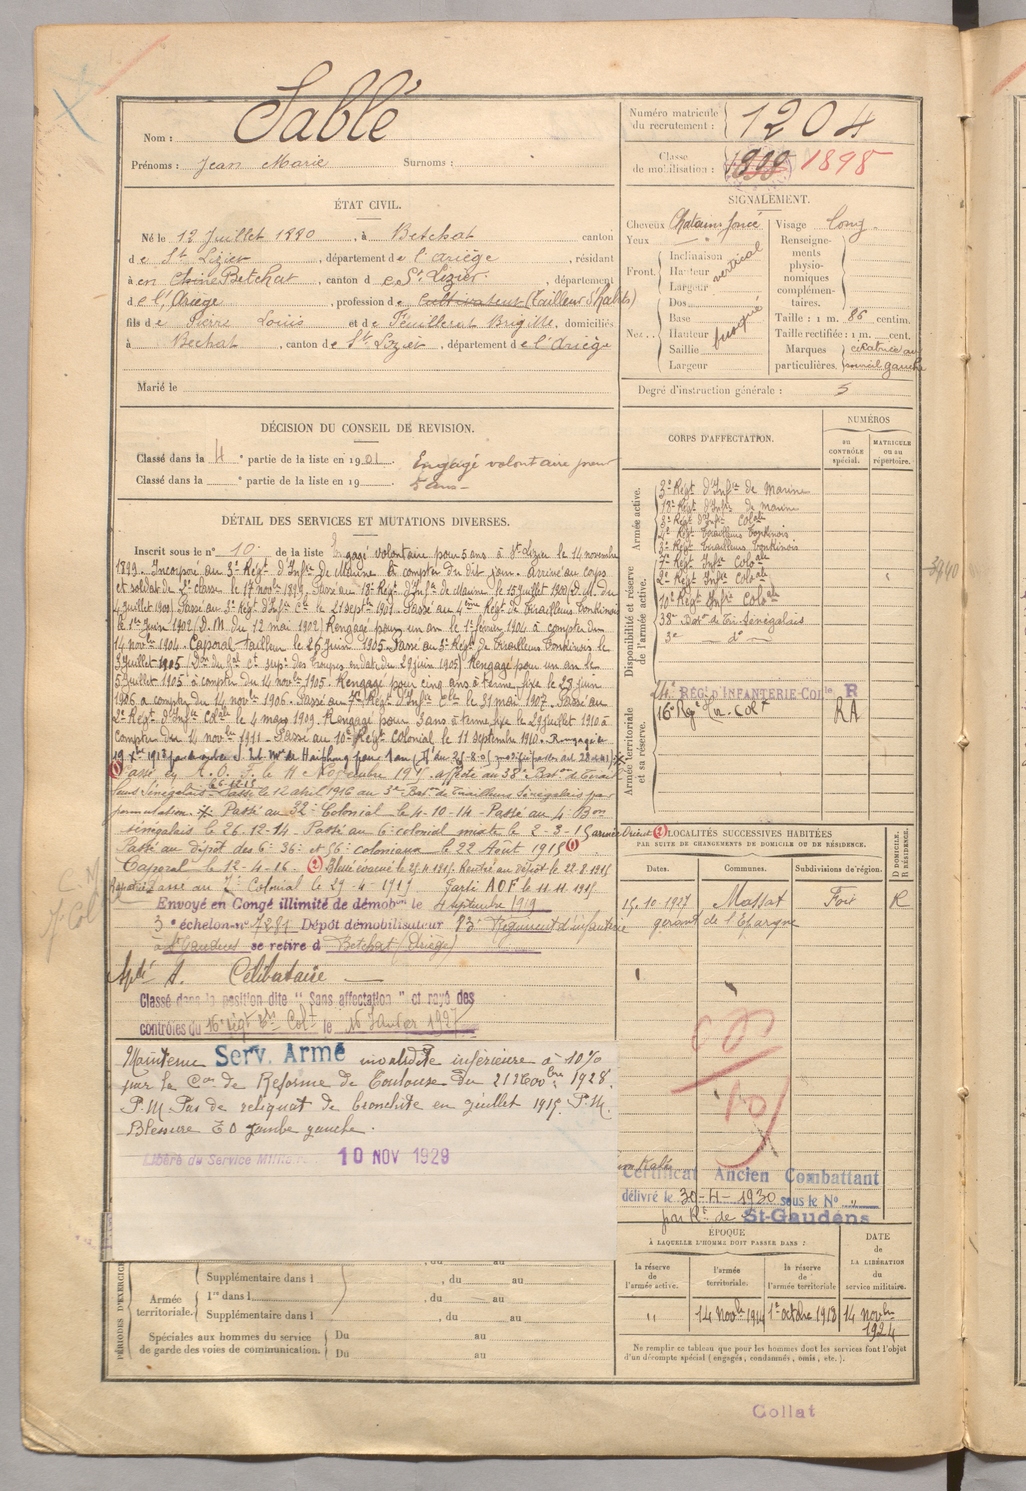 Nom : Sablé
Prénoms : Jean Marie Surnoms :
ÉTAT CIVIL.
Né le 12 Juillet 1880, à Betchat canton
de St Lizier, département de l'Ariège, résidant
à en Betchat, canton de St Lizier, département
de l'Ariège, profession de cultivateur (Tailleur d'habits)
fils de Pierre Louis et de Feuillerat Brigitte, domiciliés
à Bechat, canton de St Lizier, département de l'Ariège
Marié le
DÉCISION DU CONSEIL DE REVISION.
Classé dans la 4e partie de la liste en 1901. Engagé volontaire pour
Classé dans la e partie de la liste en 19 5 ans
DÉTAIL DES SERVICES ET MUTATIONS DIVERSES.
Inscrit sous le n° 10 de la liste Engagé volontaire pour 5 ans à St Lizier le 14 novembre
1899. Incorporé au 3e Régt d'Infie de Marine à compter du dit jour. Arrivé au corps
et soldat de 2e classe le 17 novbre 1899. Passé au 18e Régt d'Infie de Marine le 15 juillet 1900 (D.M. du
4 juillet 1900) Passé au 3e Régt d'Infie Cle le 21 septbre 1901. Passé au 4ème Régt de Tirailleurs Tonkinois
le 1er Juin 1902 (D.M. du 12 mai 1902) Rengagé pour un an le 1er février 1904 à compter du
14 novbre 1904. Caporal tailleur le 26 juin 1905. Passé au 3e Régt de Tirailleurs Tonkinois le
3 juillet 1905 des troupes en date du 29 juin 1905) Rengagé pour un an le
5 juillet 1905 à compter du 14 novbre 1905. Rengagé pour cinq ans à terme fixe le 23 juin
1906 à compter du 14 novbre 1906. Passé au 7e Régt d'Infie Cle le 31 mai 1907. Passé au
2e Régt d'Infie Colale le 4 mars 1909. Rengagé pour 3 ans à terme fixe le 29 juillet 1910 à
compter du 14 novbre 1911. Passé au 10e Régt Colonial le 11 septembre 1910. Rengagé le
de Haiphong pour 1 an
Passé en A. O. F. le 11 Novembre 191 affecté au 38e Baton de Tirail
leurs Sénégalais. Passé le 12 avril 1916 au 3e Bat. de Tirailleurs Sénégalais par
permutation. Passé au 32e Colonial le 4-10-14 Passé au 4e Bon
sénégalais le 26.12-14 Passé au 6e colonial mixte le 2-3-15 armée Orient
Passé au dépôt des 6e 36e et 56e coloniaux le 22 Août 1915 (1)
Caporal le 12-4-16. (2) Blessé évacué Rentré au dépôt le 22-8-1915
Passé au 2e Colonial le 29-4-1917 Parti AOF le 11.11.1915
Envoyé en Congé illimité de démobon le 4 septembre 1919
3e échelon n° 7281 Dépôt démobilisateur 83e Régiment d'infanterie
à St Gaudens se retire à Betchat (Ariège)
Célibataire
Classé dans la position dite "Sans affectation" et rayé des
contrôles du 16e régt Colt le 15 Janvier 1927
Maintenu Serv. Armé invalidité inférieure à 10%
par la Con de Réforme de Toulouse du 21 1928.
P.M. Pas de reliquat de bronchite en juillet 1915. P.M.
Blessure E O jambe gauche.
Libéré du Service Militaire 10 NOV 1929
Supplémentaire dans l , du au
Armée territoriale. 1re dans l , du au
Supplémentaire dans l , du au
Spéciales aux hommes du service Du au
de garde des voies de communication. Du au
PÉRIODES D'EXERCICE
Numéro matricule du recrutement : 1204
Classe de mobilisation : 1899 1898
SIGNALEMENT.
Cheveux Châtains foncé Visage long
Yeux "
Renseignements physionomiques complémentaires.
Front. Inclinaison vertical
Hauteur
Largeur
Nez.. Dos
Base busqué
Hauteur
Saillie
Largeur
Taille : 1 m. 86 centim.
Taille rectifiée : 1 m. cent.
Marques particulières. cicatrice au sourcil gauche
Degré d'instruction générale : 3
CORPS D'AFFECTATION.
NUMÉROS
au CONTRÔLE spécial. MATRICULE ou au répertoire.
Armée active.
3e Régt d'Infie de Marine
18e Régt d'Infie de marine
3e Régt d'Infie Colale
4e Régt Tirailleurs Tonkinois
3e Régt Tirailleurs Tonkinois
7e Régt Infie Colole
2e Régt Infie Colale
10e Régt Infie Colale
38e Baton de Tir. Sénégalais
3e do
3940
Disponibilité et réserve de l'armée active.
RÉGt D'INFANTERIE-COLle R
16e Régt Colt RA
Armée territoriale et sa réserve.
LOCALITÉS SUCCESSIVES HABITÉES
PAR SUITE DE CHANGEMENTS DE DOMICILE OU DE RÉSIDENCE.
Dates. Communes. Subdivisions de région. D DOMICILE. R RÉSIDENCE.
15.10-1927 Massat Foix R
gérant de l'Epargne
Certificat Ancien Combattant
délivré le 30-4-1930 sous le No "
par de St-Gaudens
ÉPOQUE
À LAQUELLE L'HOMME DOIT PASSER DANS :
DATE de LA LIBÉRATION du service militaire.
la réserve de l'armée active. l'armée territoriale. la réserve de l'armée territoriale
" 14 Novbre 1914 1er octobre 1918 14 Novbre 1924
Ne remplir ce tableau que pour les hommes dont les services font l'objet
d'un décompte spécial (engagés, condamnés, omis, etc.).
Collat